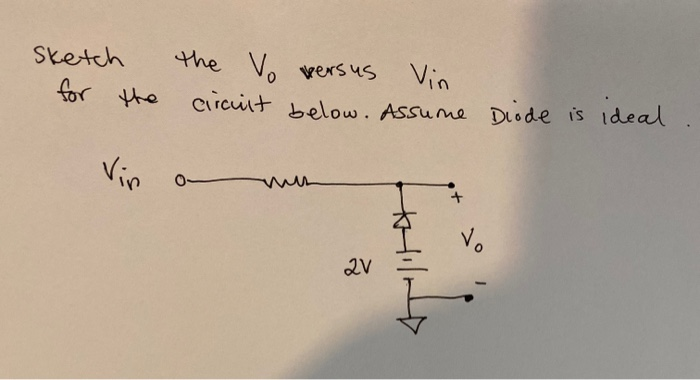 Sketch the Vo versus Vin
for the circuit below. Assume Diode is ideal.
Vin
+
Vo
2V
-